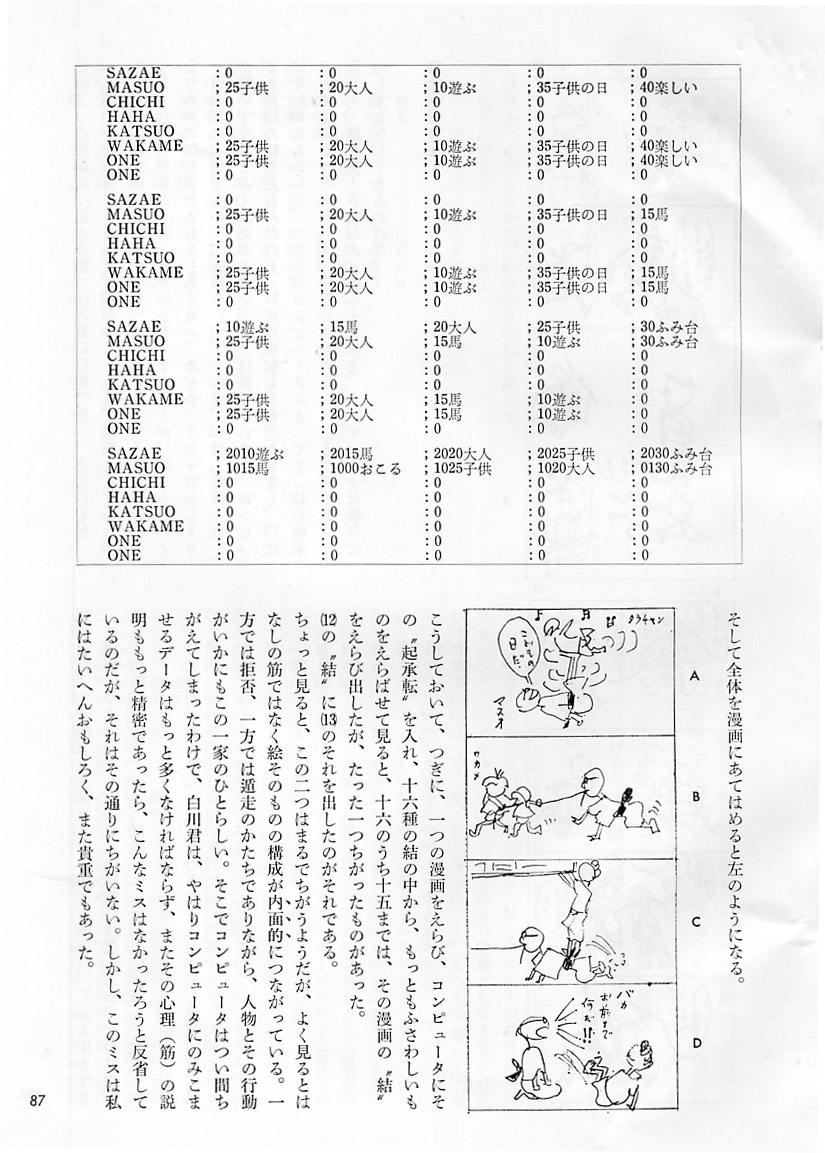 SAZAE :0 :0 :0 :0 :0
MASUO ;25子供 ;20大人 ;10遊ぶ ;35子供の日 ;40楽しい
CHICHI :0 :0 :0 :0 :0
HAHA :0 :0 :0 :0 :0
KATSUO :0 :0 :0 :0 :0
WAKAME ;25子供 ;20大人 ;10遊ぶ ;35子供の日 ;40楽しい
ONE ;25子供 ;20大人 ;10遊ぶ ;35子供の日 ;40楽しい
ONE :0 :0 :0 :0 :0
SAZAE :0 :0 :0 :0 :0
MASUO ;25子供 ;20大人 ;10遊ぶ ;35子供の日 ;15馬
CHICHI :0 :0 :0 :0 :0
HAHA :0 :0 :0 :0 :0
KATSUO :0 :0 :0 :0 :0
WAKAME ;25子供 ;20大人 ;10遊ぶ ;35子供の日 ;15馬
ONE ;25子供 ;20大人 ;10遊ぶ ;35子供の日 ;15馬
ONE :0 :0 :0 :0 :0
SAZAE ;10遊ぶ ;15馬 ;20大人 ;25子供 ;30ふみ台
MASUO ;25子供 ;20大人 ;15馬 ;10遊ぶ ;30ふみ台
CHICHI :0 :0 :0 :0 :0
HAHA :0 :0 :0 :0 :0
KATSUO :0 :0 :0 :0 :0
WAKAME ;25子供 ;20大人 ;15馬 ;10遊ぶ :0
ONE ;25子供 ;20大人 ;15馬 ;10遊ぶ :0
ONE :0 :0 :0 :0 :0
SAZAE ;2010遊ぶ ;2015馬 ;2020大人 ;2025子供 ;2030ふみ台
MASUO ;1015馬 ;1000おこる ;1025子供 ;1020大人 ;0130ふみ台
CHICHI :0 :0 :0 :0 :0
HAHA :0 :0 :0 :0 :0
KATSUO :0 :0 :0 :0 :0
WAKAME :0 :0 :0 :0 :0
ONE :0 :0 :0 :0 :0
ONE :0 :0 :0 :0 :0
そして全体を漫画にあてはめると左のようになる。
A
タラチャン
こどもの
日だ
マスオ
B
ワカメ
C
D
バカ
お前まで
何だ!!
こうしておいて、つぎに、一つの漫画をえらび、コンピュータにそ
の〝起承転〟を入れ、十六種の結の中から、もっともふさわしいも
のをえらばせて見ると、十六のうち十五までは、その漫画の〝結〟
をえらび出したが、たった一つちがったものがあった。
⑿の〝結〟に⒀のそれを出したのがそれである。
ちょっと見ると、この二つはまるでちがうようだが、よく見るとは
なしの筋ではなく絵そのものの構成が内面的につながっている。一
方では拒否、一方では遁走のかたちでありながら、人物とその行動
がいかにもこの一家のひとらしい。そこでコンピュータはつい間ち
がえてしまったわけで、白川君は、やはりコンピュータにのみこま
せるデータはもっと多くなければならず、またその心理(筋)の説
明ももっと精密であったら、こんなミスはなかったろうと反省して
いるのだが、それはその通りにちがいない。しかし、このミスは私
にはたいへんおもしろく、また貴重でもあった。
87